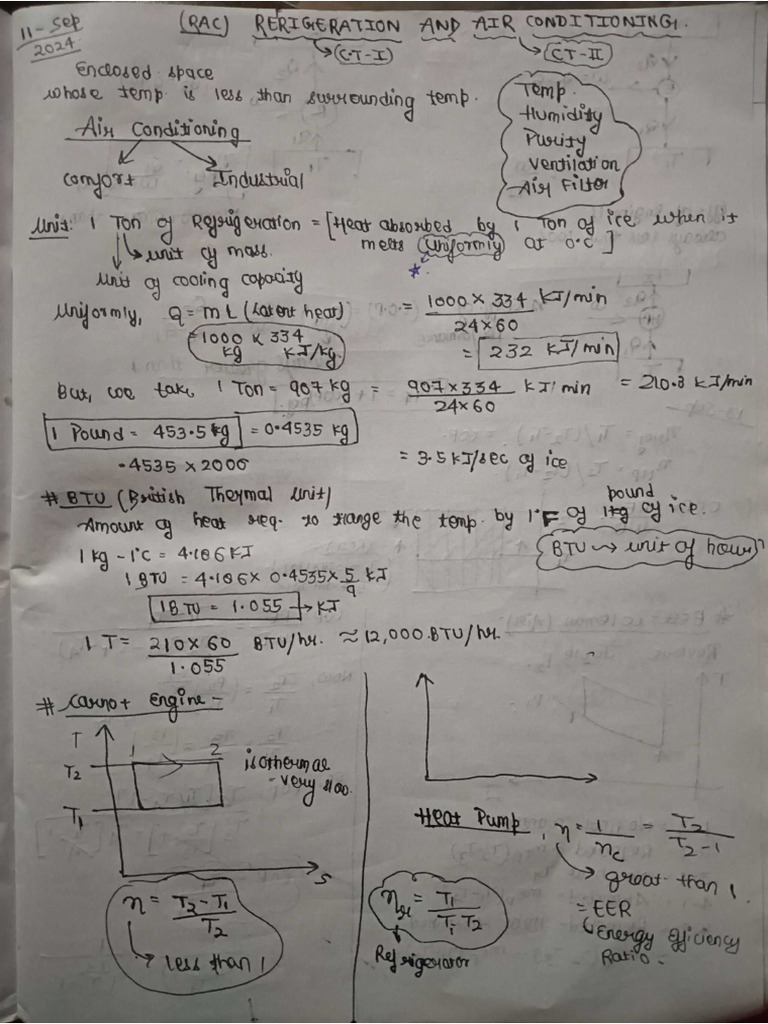 11-Sep
2024
(RAC) RERIGERATION AND AIR CONDITIONING.
(CT-I)
(CT-II)
Enclosed space
whose temp. is less than surrounding temp.
Temp.
Humidity
Purity
Ventilation
Air Filter
Air Conditioning
comfort
Industrial
Unit: 1 Ton of Refrigeration = [Heat absorbed by 1 Ton of ice when it
melts (uniformly) at 0°C]
unit of mass.
unit of cooling capacity
Uniformly, Q = mL (Latent heat)
= 1000 × 334
kg KJ/kg.
= 1000 × 334 KJ/min
24×60
= 232 KJ/min
But, we take 1 Ton = 907 kg = 907×334 KJ/min = 210.3 KJ/min
24×60
1 Pound = 453.5 kg = 0.4535 kg
.4535 × 2000
= 3.5 KJ/sec of ice
# BTU (British Thermal Unit)
pound
Amount of heat req. to change the temp. by 1°F of 1kg of ice.
1 kg - 1°C = 4.186 KJ
BTU → unit of hour
1 BTU = 4.186 × 0.4535 × 5/9 KJ
1 BTU = 1.055 → KJ
1 T = 210×60 BTU/hr. ≈ 12,000 BTU/hr.
1.055
# Carnot Engine -
T
1 2
T2
T1
S
isothermal
- very slow.
η = T2 - T1
T2
less than 1
Heat Pump, η = 1 = T2
ηc T2-1
great than 1
= EER
Energy efficiency
Ratio -
ηR = T1
T1 T2
Refrigerator